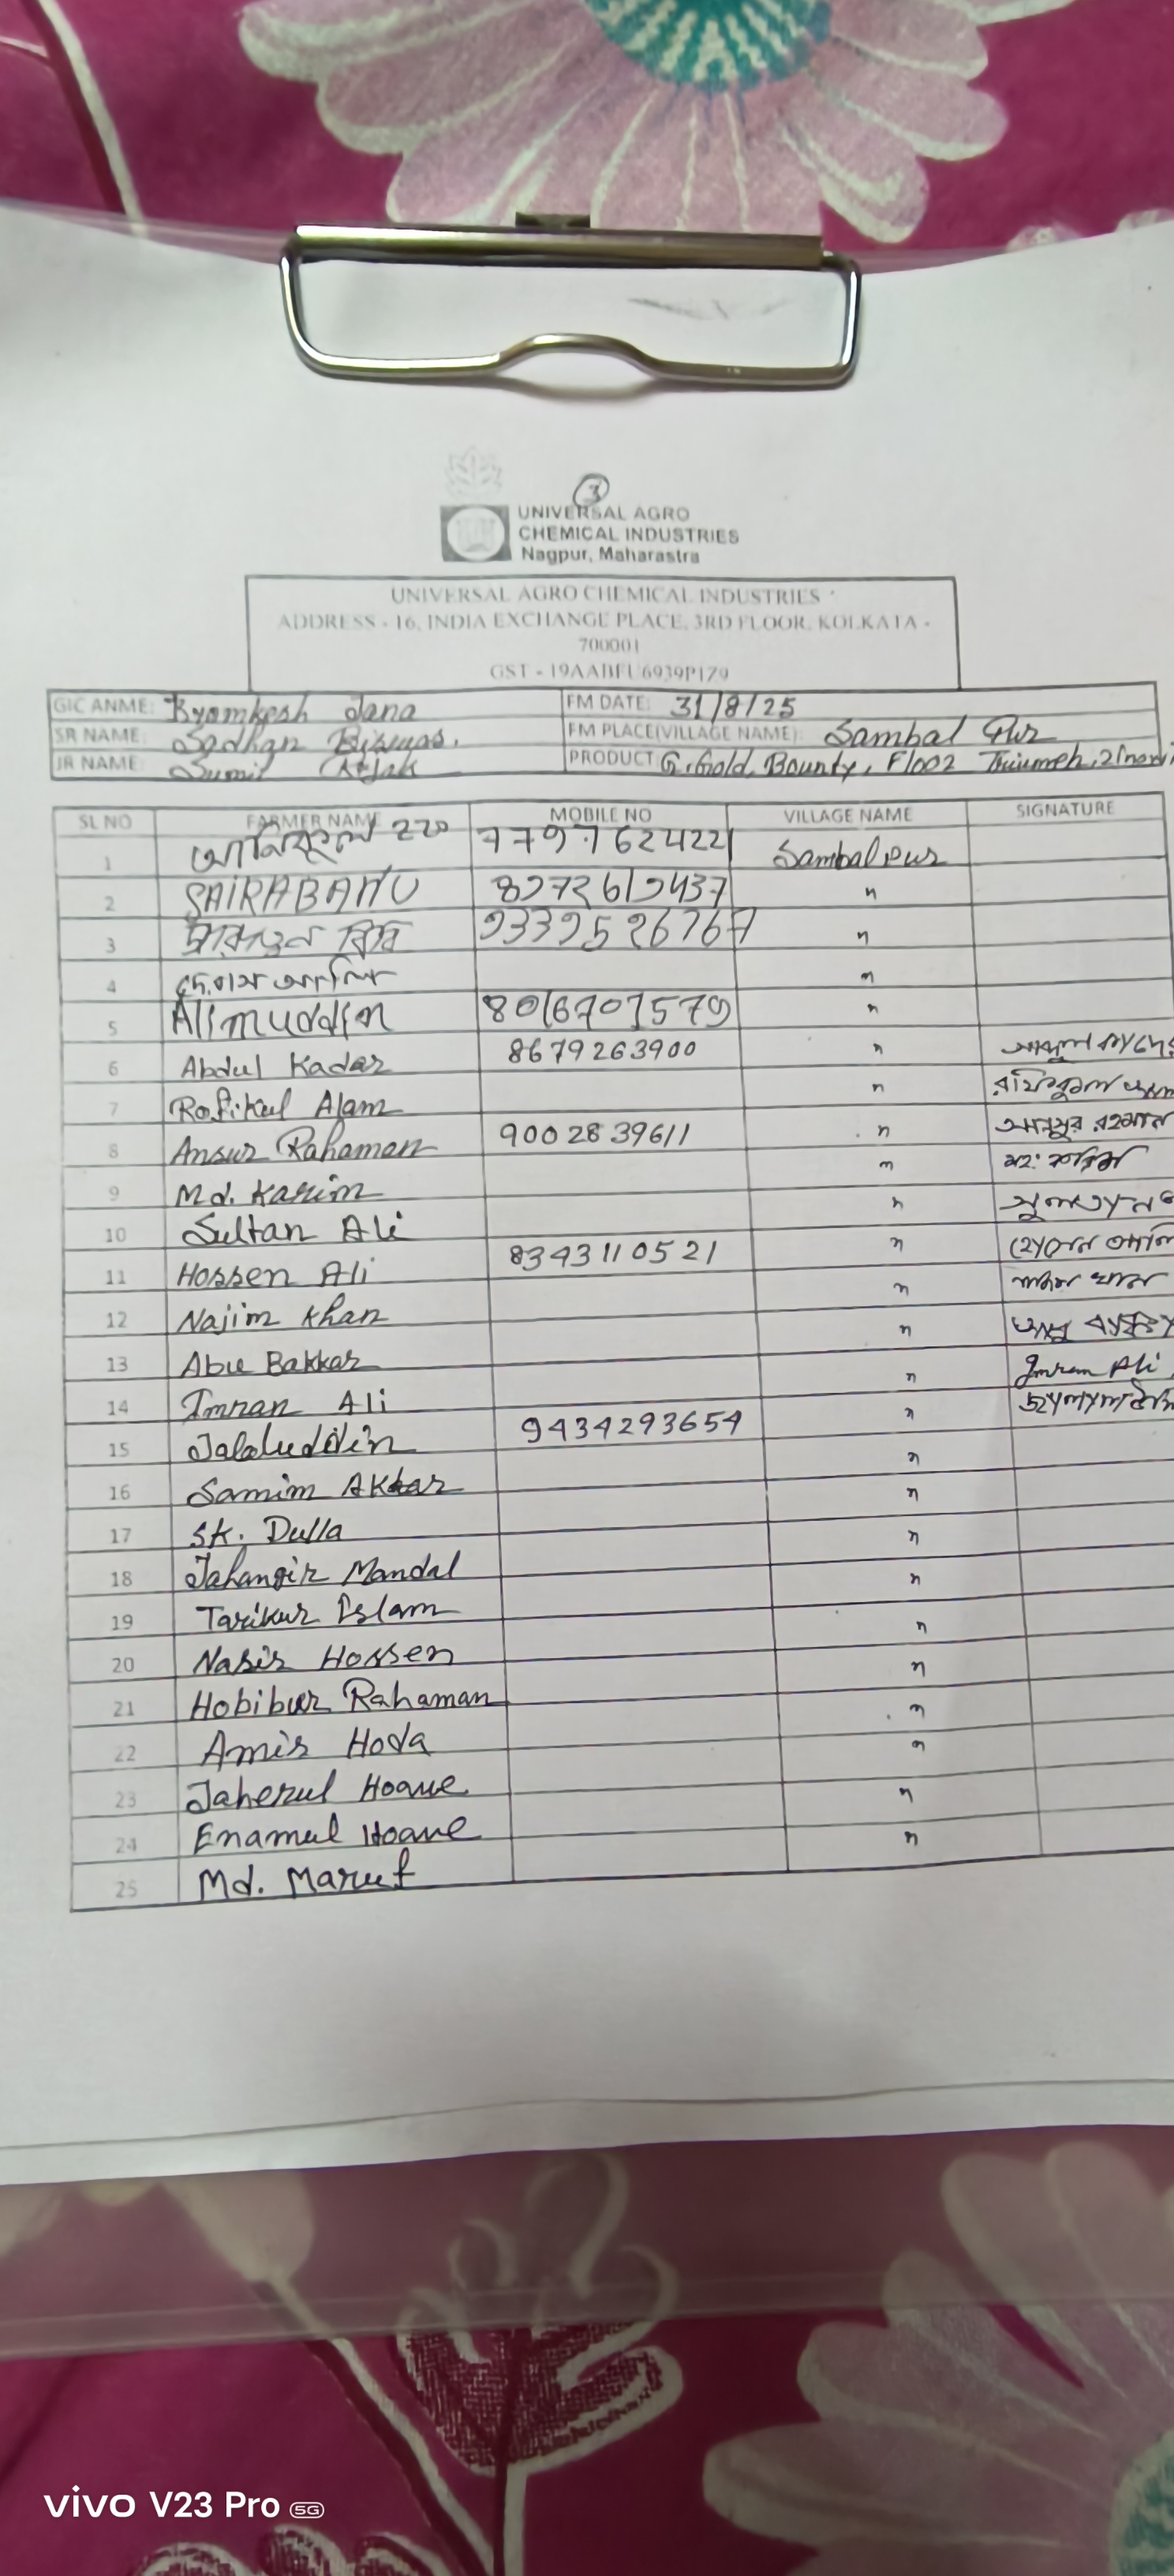 3
UNIVERSAL AGRO
CHEMICAL INDUSTRIES
Nagpur, Maharastra
UNIVERSAL AGRO CHEMICAL INDUSTRIES
ADDRESS - 16, INDIA EXCHANGE PLACE, 3RD FLOOR, KOLKATA -
700001
GST - 19AABFU6939P1Z9
GIC ANME: Byomkesh Jana FM DATE: 31/8/25
SR NAME: Sadhan Biswas. FM PLACE(VILLAGE NAME): Sambal Pur
JR NAME: Sumit PRODUCT G.Gold, Bounty, Floo2
SL NO FARMER NAME MOBILE NO VILLAGE NAME SIGNATURE
1 7797762422 Sambalpur
2 SAIRABANU 8972619437 "
3 বিবি 9339526767 "
4 আলি "
5 Alimuddin 8016701579 "
6 Abdul Kadar 8679263900 " আব্দুল কাদের
7 Rofikul Alam " রফিকুল
8 Ansur Rahaman 9002839611 " আনসুর রহমান
9 Md. Karim " মহ: করিম
10 Sultan Ali " সুলতান
11 Hossen Ali 8343110521 " হোসেন আলি
12 Najim Khan " খান
13 Abu Bakkar " আবু
14 Imran Ali " Imran Ali
15 Jalaluddin 9434293654 " জালালউদ্দি
16 Samim Aktar "
17 SK. Dulla "
18 Jahangir Mandal "
19 Tarikur Islam "
20 Nasir Hossen "
21 Hobibur Rahaman "
22 Amir Hoda "
23 Jaherul Hoque "
24 Enamul Hoque "
25 Md. Maruf "
vivo V23 Pro 5G